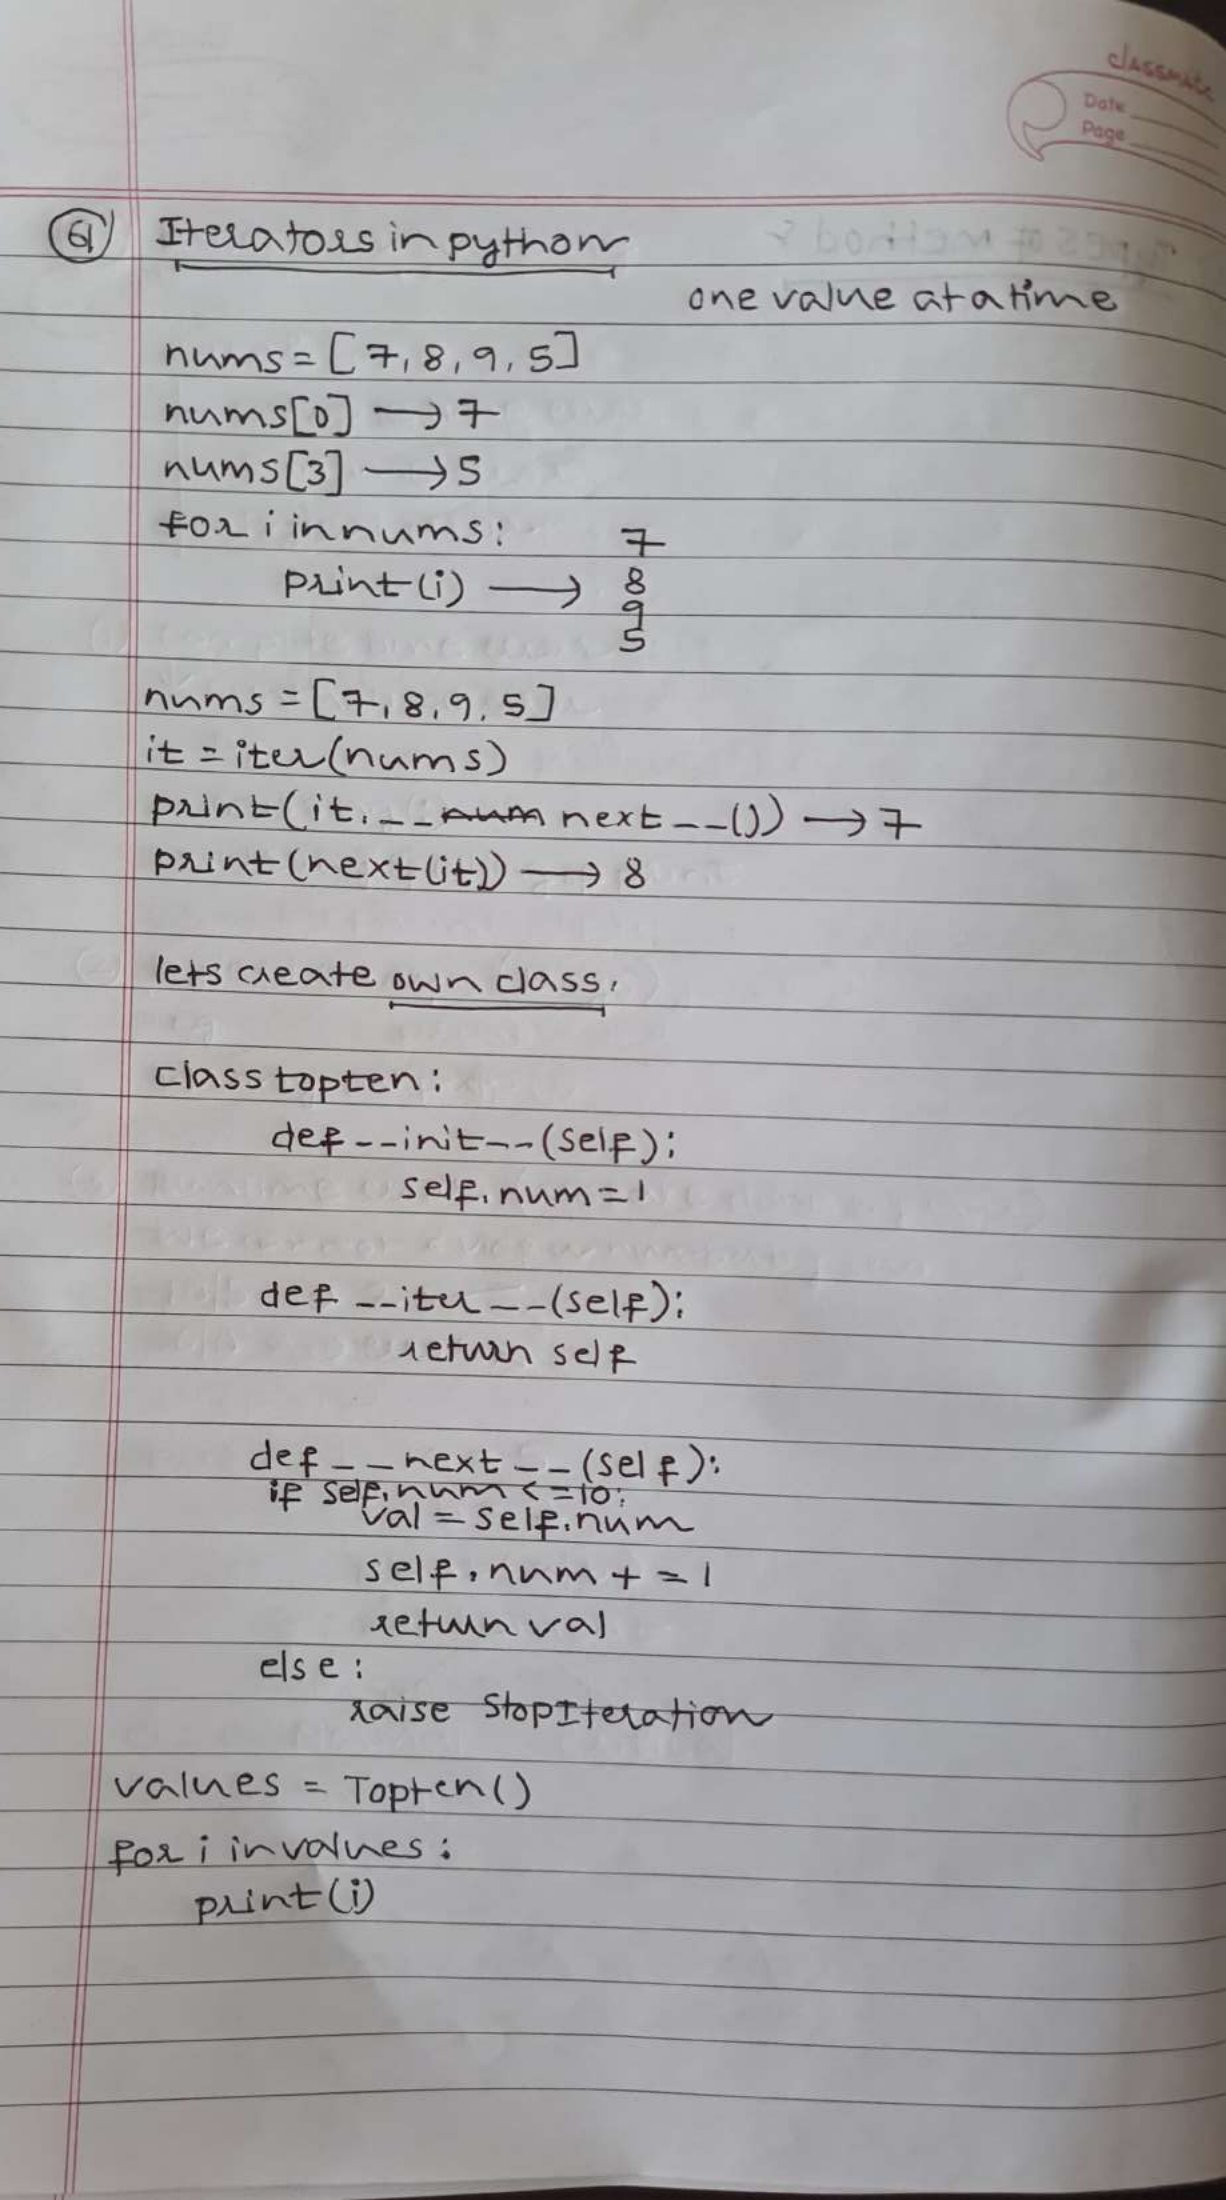 classmate
Date
Page
61 Iterators in python
one value at a time
nums = [7, 8, 9, 5]
nums[0] → 7
nums[3] → 5
for i in nums: 7
print(i) → 8
9
5
nums = [7, 8, 9, 5]
it = iter(nums)
print(it.__num next__()) → 7
print(next(it)) → 8
lets create own class.
class topten:
def __init__(self):
self.num = 1
def __iter__(self):
return self
def __next__(self):
if self.num <= 10:
val = self.num
self.num += 1
return val
else:
raise StopIteration
values = Topten()
for i in values:
print(i)